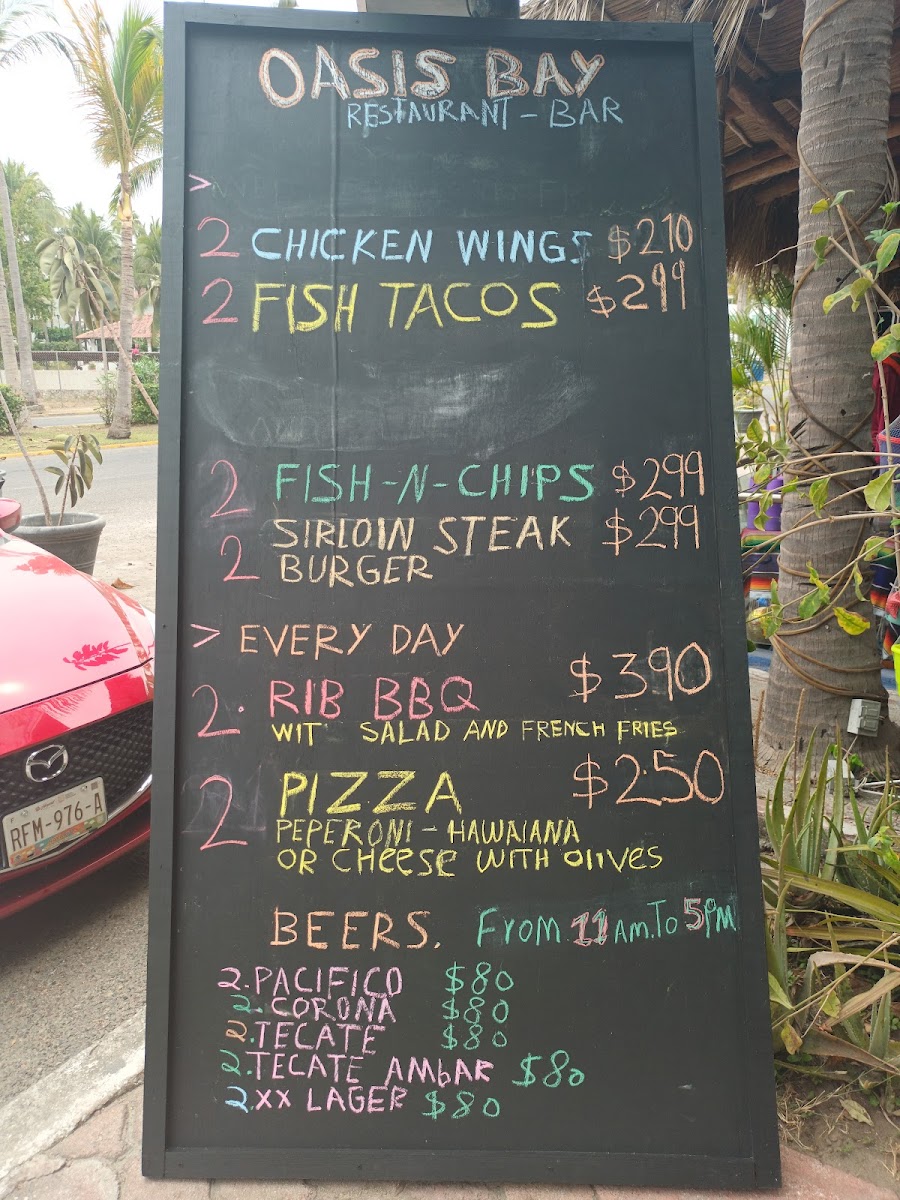 OASIS BAY
RESTAURANT - BAR
>
2 CHICKEN WINGS $210
2 FISH TACOS $299
2 FISH-N-CHIPS $299
2 SIRLOIN STEAK $299
BURGER
> EVERY DAY
2. RIB BBQ $390
WIT SALAD AND FRENCH FRIES
2 PIZZA $250
PEPERONI - HAWAIANA
OR CHEESE WITH OLIVES
BEERS. FROM 11 AM. TO 5PM
2. PACIFICO $80
2. CORONA $80
2. TECATE $80
2. TECATE AMbAR $80
2. XX LAGER $80
RFM-976-A